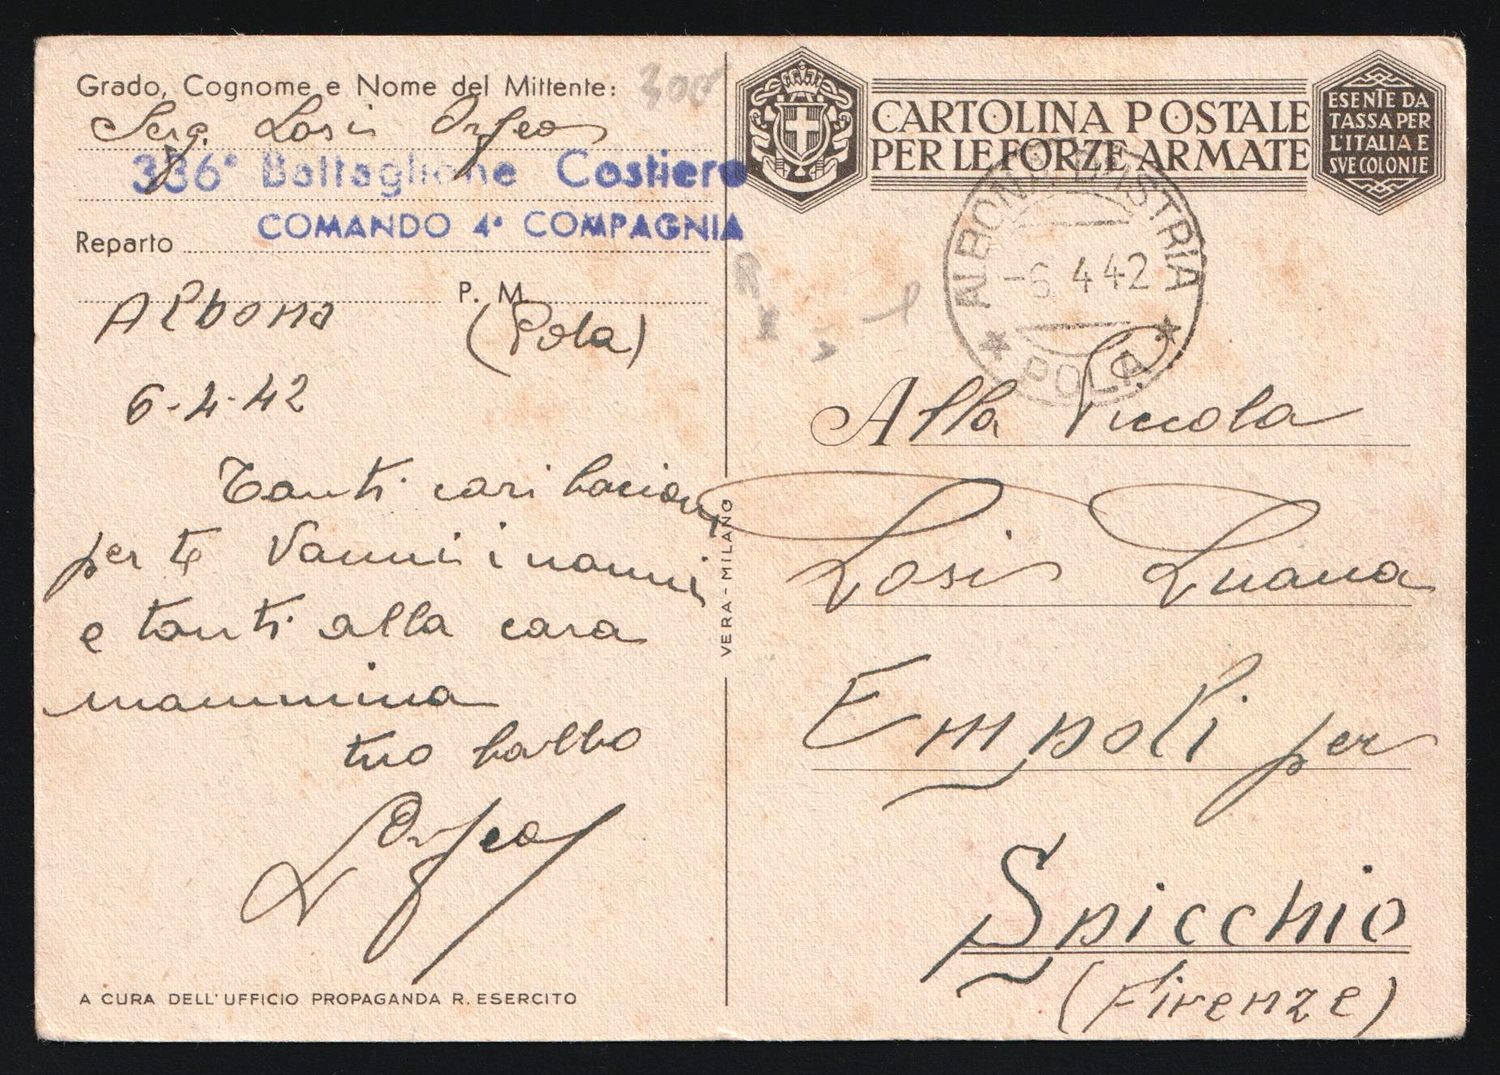 Grado, Cognome e Nome del Mittente:
300
Serg. Losi Orfeo
336° Battaglione Costiero
COMANDO 4ª COMPAGNIA
Reparto
P. M.
Albona (Pola)
6-4-42
Tanti cari bacioni
per te Vanni i nonni
e tanti alla cara
mammina
tuo babbo
LOrfeo
A CURA DELL'UFFICIO PROPAGANDA R. ESERCITO
VERA - MILANO
CARTOLINA POSTALE
PER LE FORZE ARMATE
ESENTE DA
TASSA PER
L'ITALIA E
SVE COLONIE
ALBONA D'ISTRIA
-6.4.42
* POLA *
Alla Piccola
Losi Luana
Empoli per
Spicchio
(Firenze)